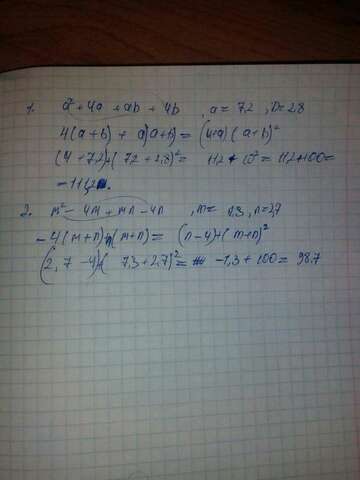 1. a² + 4a + ab + 4b a = 7,2 , b = 2,8
4(a+b) + a(a+b) = (4+a)(a+b)²
(4+7,2)+(7,2+2,8)² = 11,2 + 10² = 11,2+100=
2. m² - 4m + mn - 4n , m= 7,3, n=2,7
-4(m+n)+n(m+n)= (n-4)+(m+n)²
(2,7-4)+(7,3+2,7)² = -1,3+100= 98.7